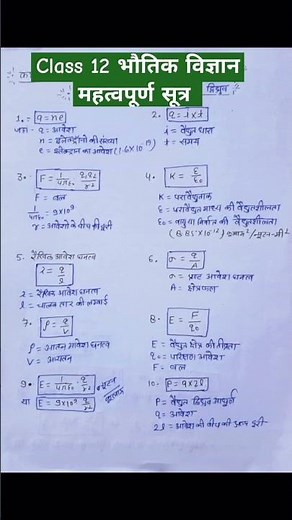 Class 12 भौतिक विज्ञान
महत्वपूर्ण सूत्र
1. q = ne
जहाँ - q = आवेश
n = इलेक्ट्रॉनों की संख्या
e = इलेक्ट्रान का आवेश (1.6×10⁻¹⁹)
2. q = i×t
i = वैद्युत धारा
t = समय
3. F = 1/4πε₀ q₁q₂/r²
F = बल
1/4πε₀ = 9×10⁹
r = आवेशों के बीच की दूरी
4. K = ε/ε₀
K = परावैद्युतांक
ε = परावैद्युत माध्य की वैद्युतशीलता
ε₀ = वायु या निर्वात की वैद्युतशीलता
(8.85×10⁻¹²) कूलाम²/न्यूटन-मी²
5. रैखिक आवेश घनत्व
λ = q/l
λ = रैखिक आवेश घनत्व
l = चालक तार की लम्बाई
6. σ = q/A
σ = पृष्ठ आवेश घनत्व
A = क्षेत्रफल
7. ρ = q/V
ρ = आयतन आवेश घनत्व
V = आयतन
8. E = F/q₀
E = वैद्युत क्षेत्र की तीव्रता
q₀ = परीक्षण आवेश
F = बल
9. E = 1/4πε₀ q/r²
या E = 9×10⁹ q/r²
10. P = q×2l
P = वैद्युत द्विध्रुव आघूर्ण
q = आवेश
2l = आवेश की बीच की दूरी